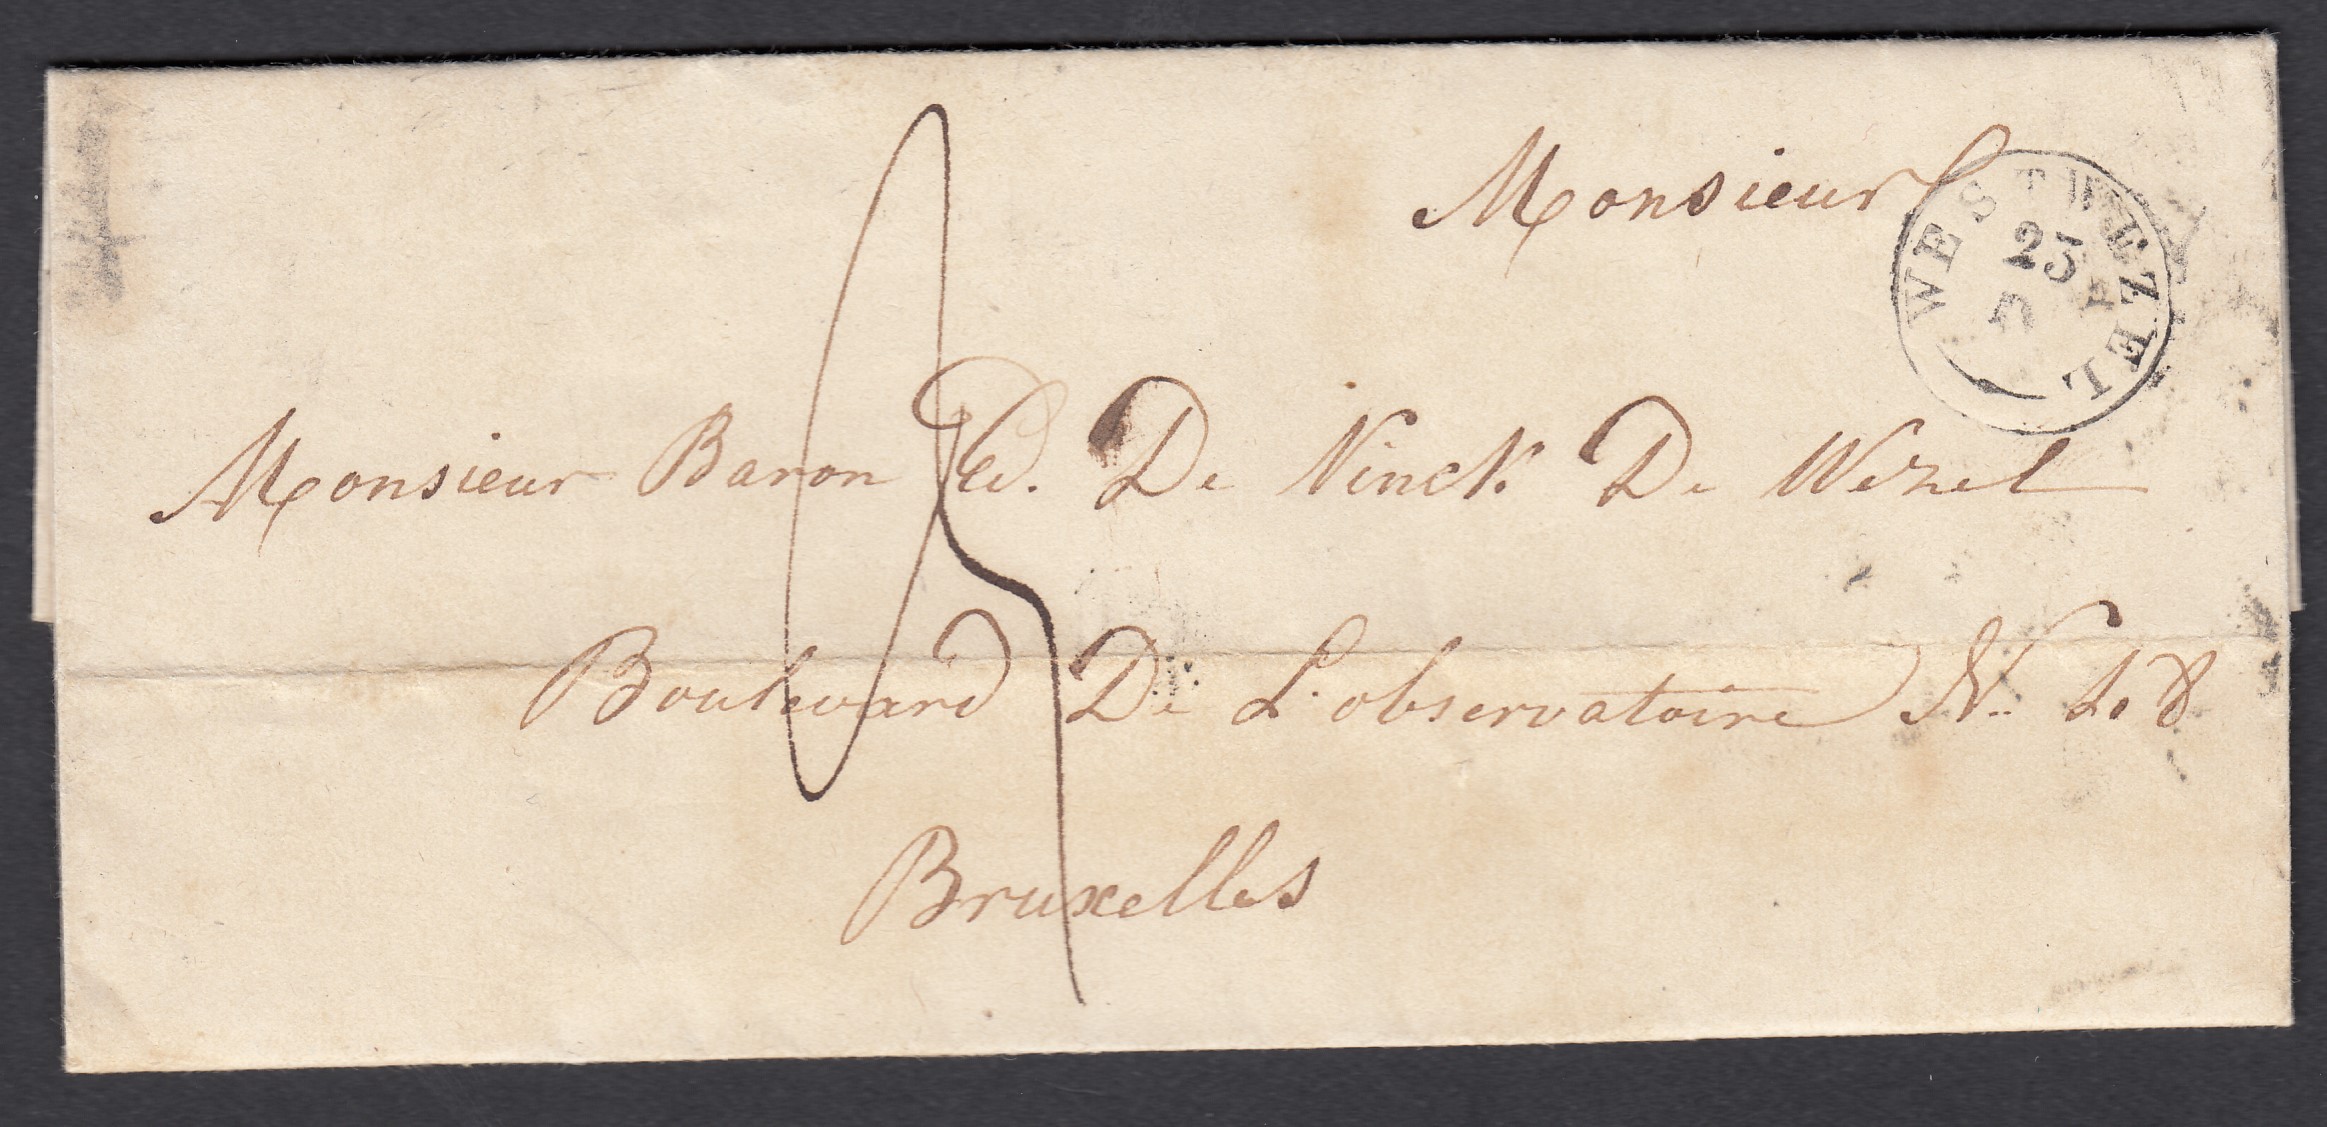 Monsieur
WESTWEZEL
25
Monsieur Baron Ed. De Vinck De Wezel
Boulevard De L'observatoire N. 48
Bruxelles